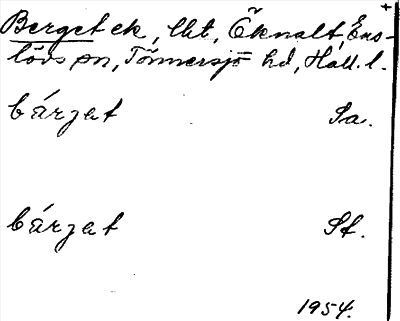 Berget ek, lht, Öknalt, Ens-
lövs sn, Tönnersjö hd, Hall. l.
bárzat Sa.
bárzat St.
1954.